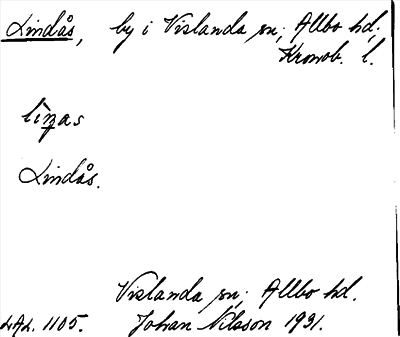 Lindås, by i Vislanda sn; Allbo hd;
Kronob. l.
li`n̠as
Lindås.
Vislanda sn; Allbo hd.
LAL. 1105. Johan Nilsson 1931.